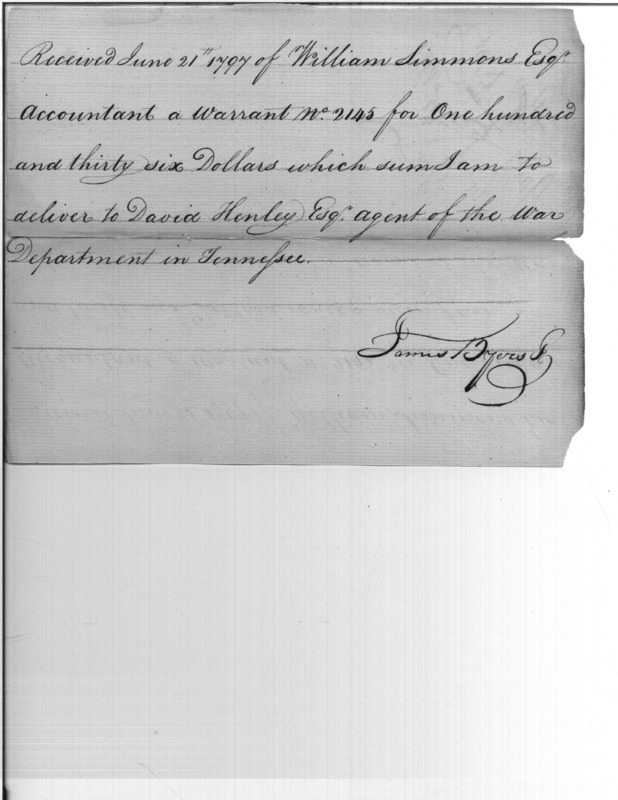 Received June 21th 1797 of William Simmons Esqr.
Accountant a Warrant No. 2145 for One hundred
and thirty six Dollars which sum I am to
deliver to David Henley Esqr. agent of the War
Department in Tennessee.
James Byers Jr